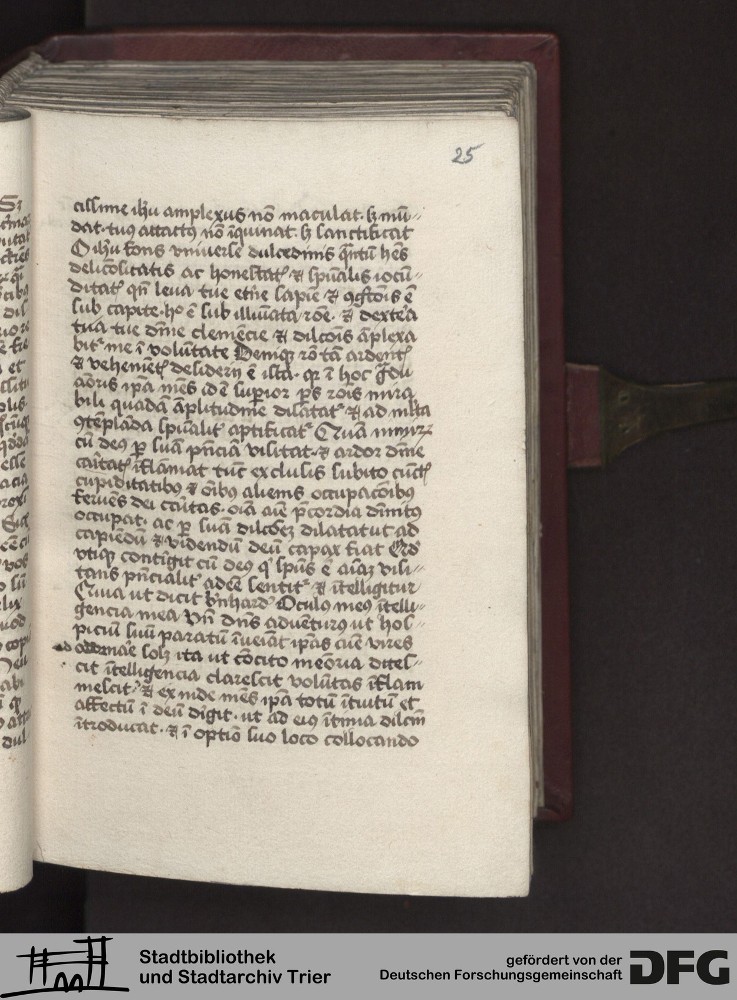 25
cissime ihu amplexus nō maculat· sꝫ mū-
dat· tuus attactꝯ nō īquinat· sꝫ sanctificat
O ihu fons vniuerse dulcedinis
delicositatis ac honestatꝭ ⁊ spūalis iocū-
ditatꝭ qn̄ leua tue et̄ne sapiē ⁊ ē
sub capite· hoc ē sub illuīata rōe· ⁊ dextera
tua tue dn̄e clemēcie ⁊ dilcōis āplexa
bitꝰ me ī volūtate Deniqꝫ
⁊ vehemētꝭ desiderii ē ista· qꝛ ī hoc
aōris ipa mēs id ē suꝑior ps rōis mira
bili quadā āplitudine dilatatꝰ ⁊ ad
9tēplāda spūalitꝭ aptificatꝰ Nam
cū deus ꝑ suā pn̄ciā visitat· ⁊ ardor dīne
caītatꝭ īflāmat tūc exclusis subito cūctꝭ
cupiditatibus ⁊ oībus alienis occupacōibus
feruēs dei caītas· oīa aīe p̄cordia dīnitus
occupat· ac ꝑ suā dilatatut ad
capiēdū ⁊ videndū deū capax fiat
vtiqꝫ contīgit cū deus qi spūs ē aīaꝫ visi-
tans pn̄cialitꝭ adeē sentitꝰ ⁊ ītelligitur
Nam ut dicit bn̄hardꝰ Oculus meus ītelli-
gencia mea Vn̄ dn̄s aduēturus ut hos-
piciū suū paratū īueiāt ipas aīe vires
ad solꝫ ita ut cōcito meōria dites-
cit ītelligencia clarescit volūtas īflam
mescit· ⁊ exinde mēs ipa totū ītuitū et
affectū ī deū dīgit· ut ad eius ītima
ītroducat· ⁊ ī optīo suo loco collocando
Stadtbibliothek
und Stadtarchiv Trier
gefördert von der
Deutschen Forschungsgemeinschaft
DFG